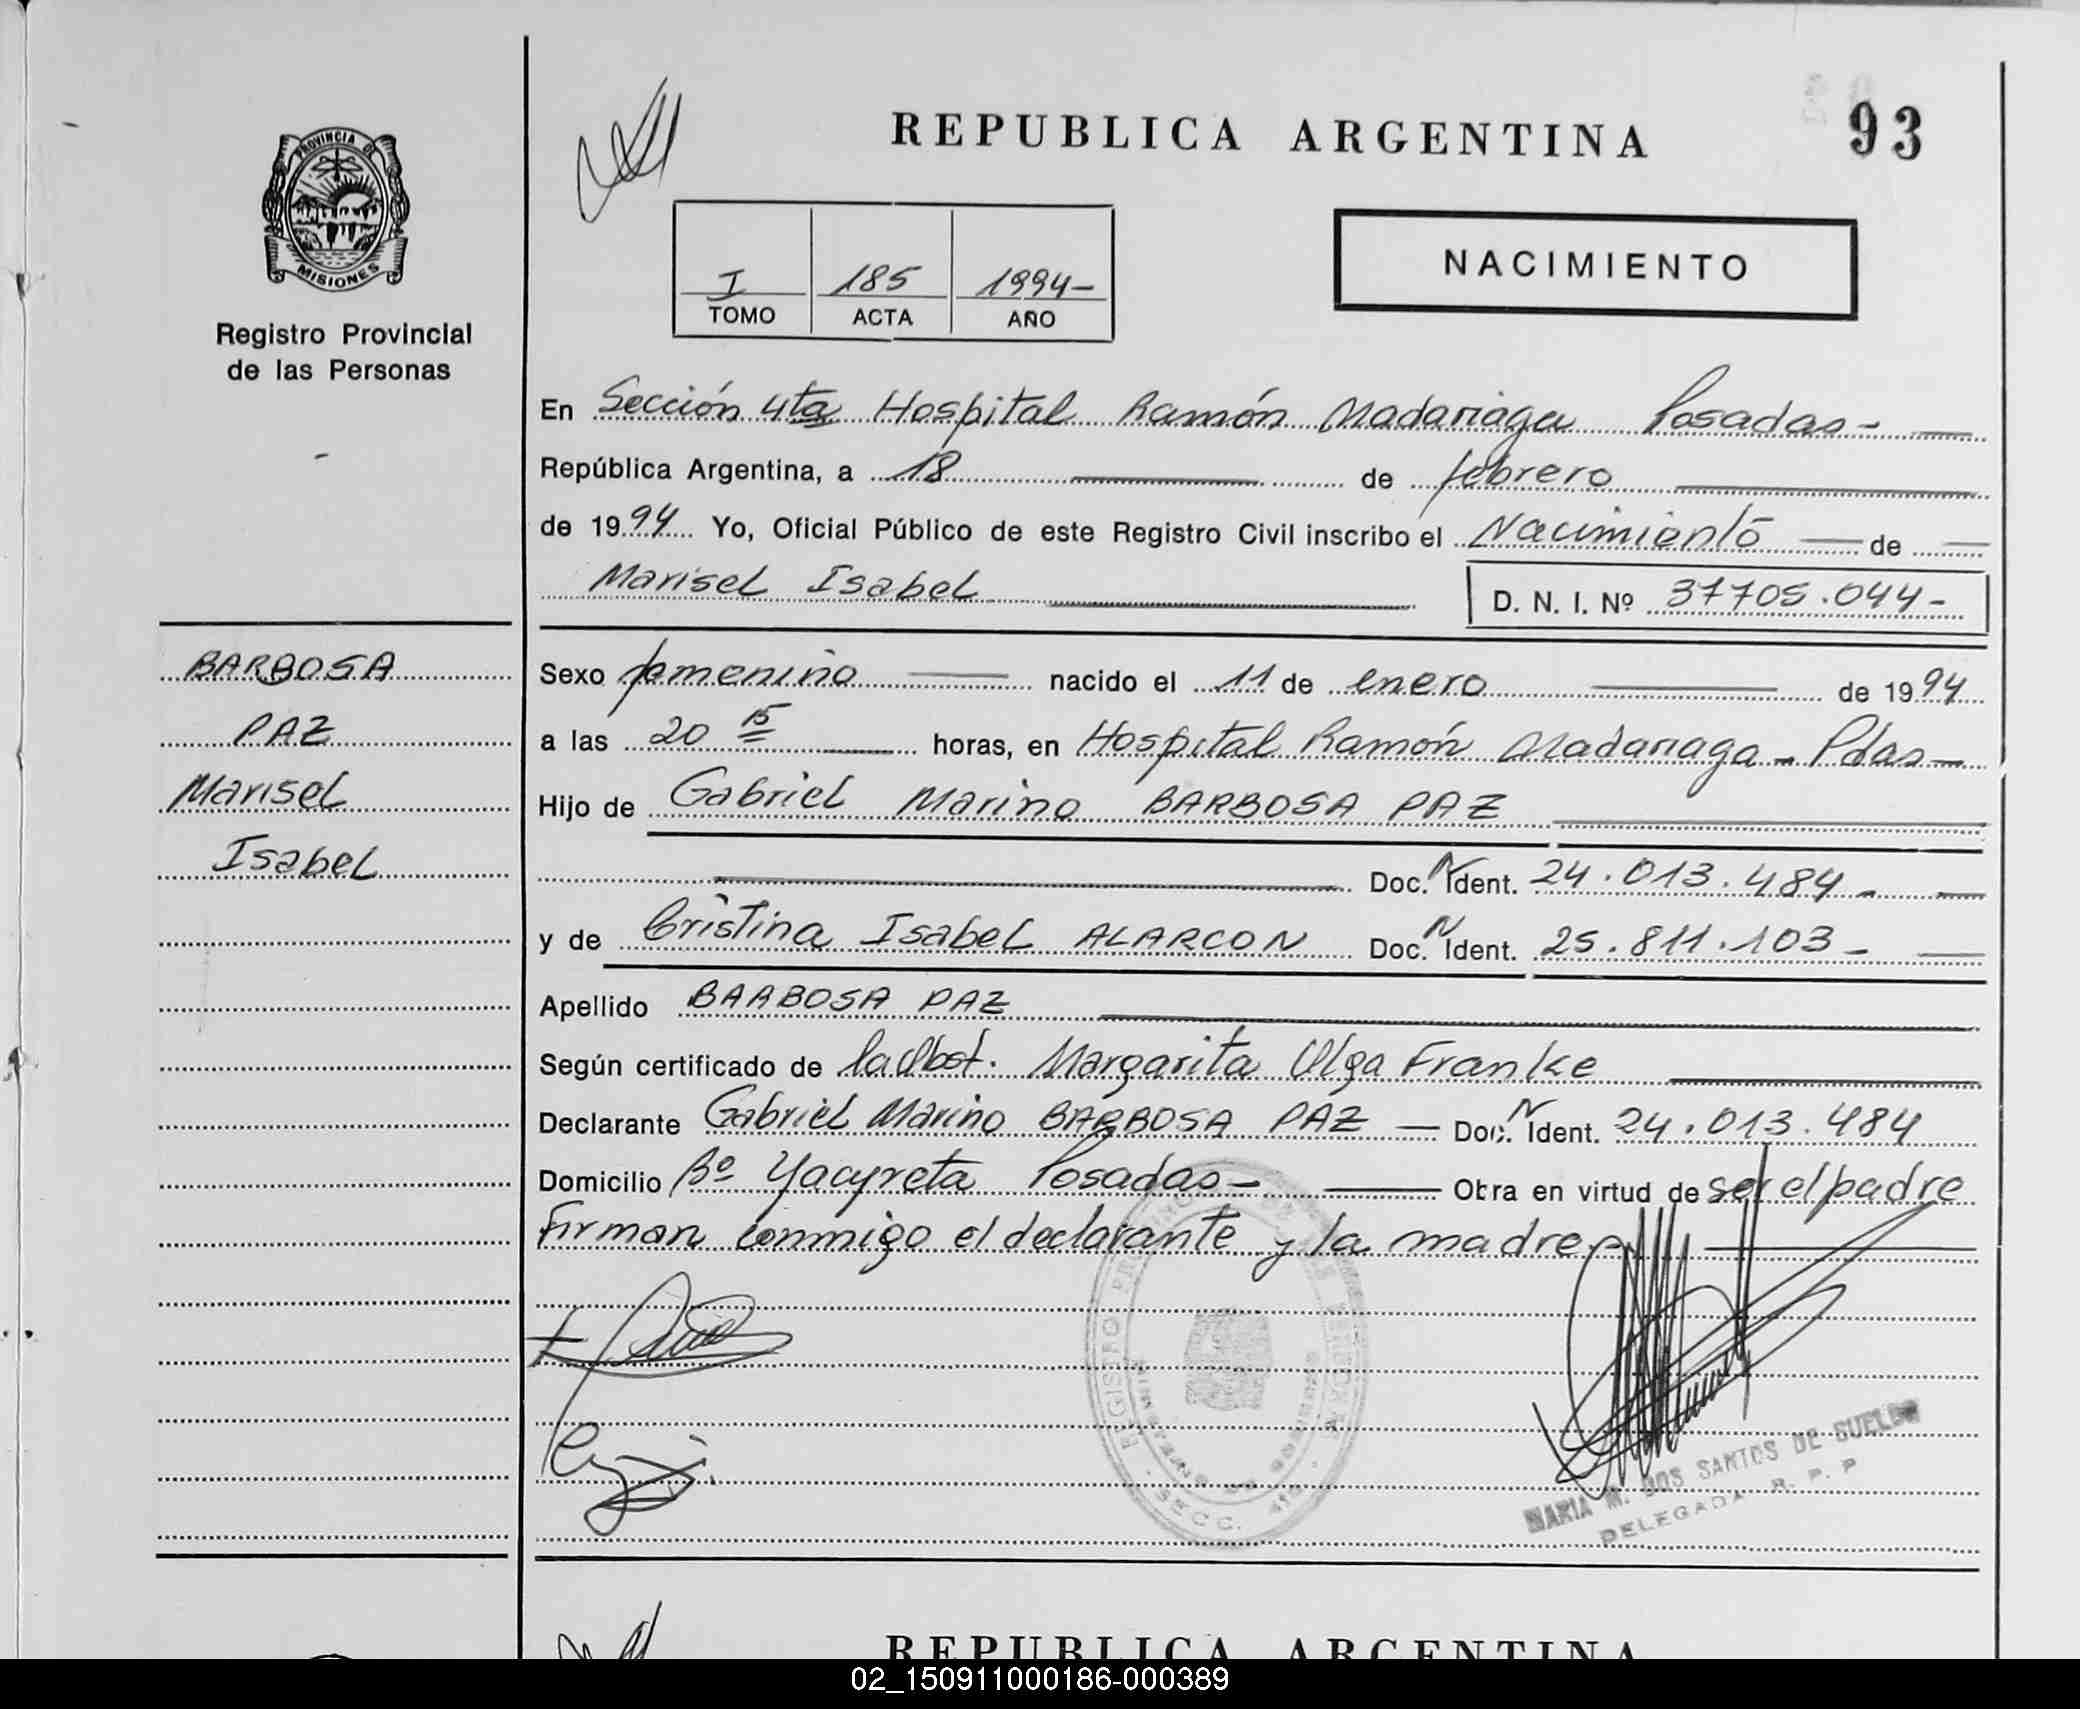 REPUBLICA ARGENTINA
93
PROVINCIA DE
MISIONES
Registro Provincial
de las Personas
I 185 1994-
TOMO ACTA AÑO
NACIMIENTO
En Sección 4ta Hospital Ramón Madariaga Posadas-
República Argentina, a 18 de febrero
de 1994 Yo, Oficial Público de este Registro Civil inscribo el Nacimiento de
Marisel Isabel D. N. I. Nº 37705.044-
BARBOSA
PAZ
Marisel
Isabel
Sexo femenino nacido el 11 de enero de 1994
a las 20 15 horas, en Hospital Ramón Madariaga - Pdas-
Hijo de Gabriel Marino BARBOSA PAZ
Doc. N Ident. 24.013.484-
y de Cristina Isabel ALARCON Doc. N Ident. 25.811.103-
Apellido BARBOSA PAZ
Según certificado de la Obst. Margarita Olga Franke
Declarante Gabriel Marino BARBOSA PAZ - Doc. N Ident. 24.013.484
Domicilio Bº Yacyreta Posadas- Obra en virtud de ser el padre
Firman conmigo el declarante y la madre
SECC. 4ta
MARIA M. DOS SANTOS DE SUELDO
DELEGADA R. P. P
REPUBLICA ARGENTINA
02_150911000186-000389